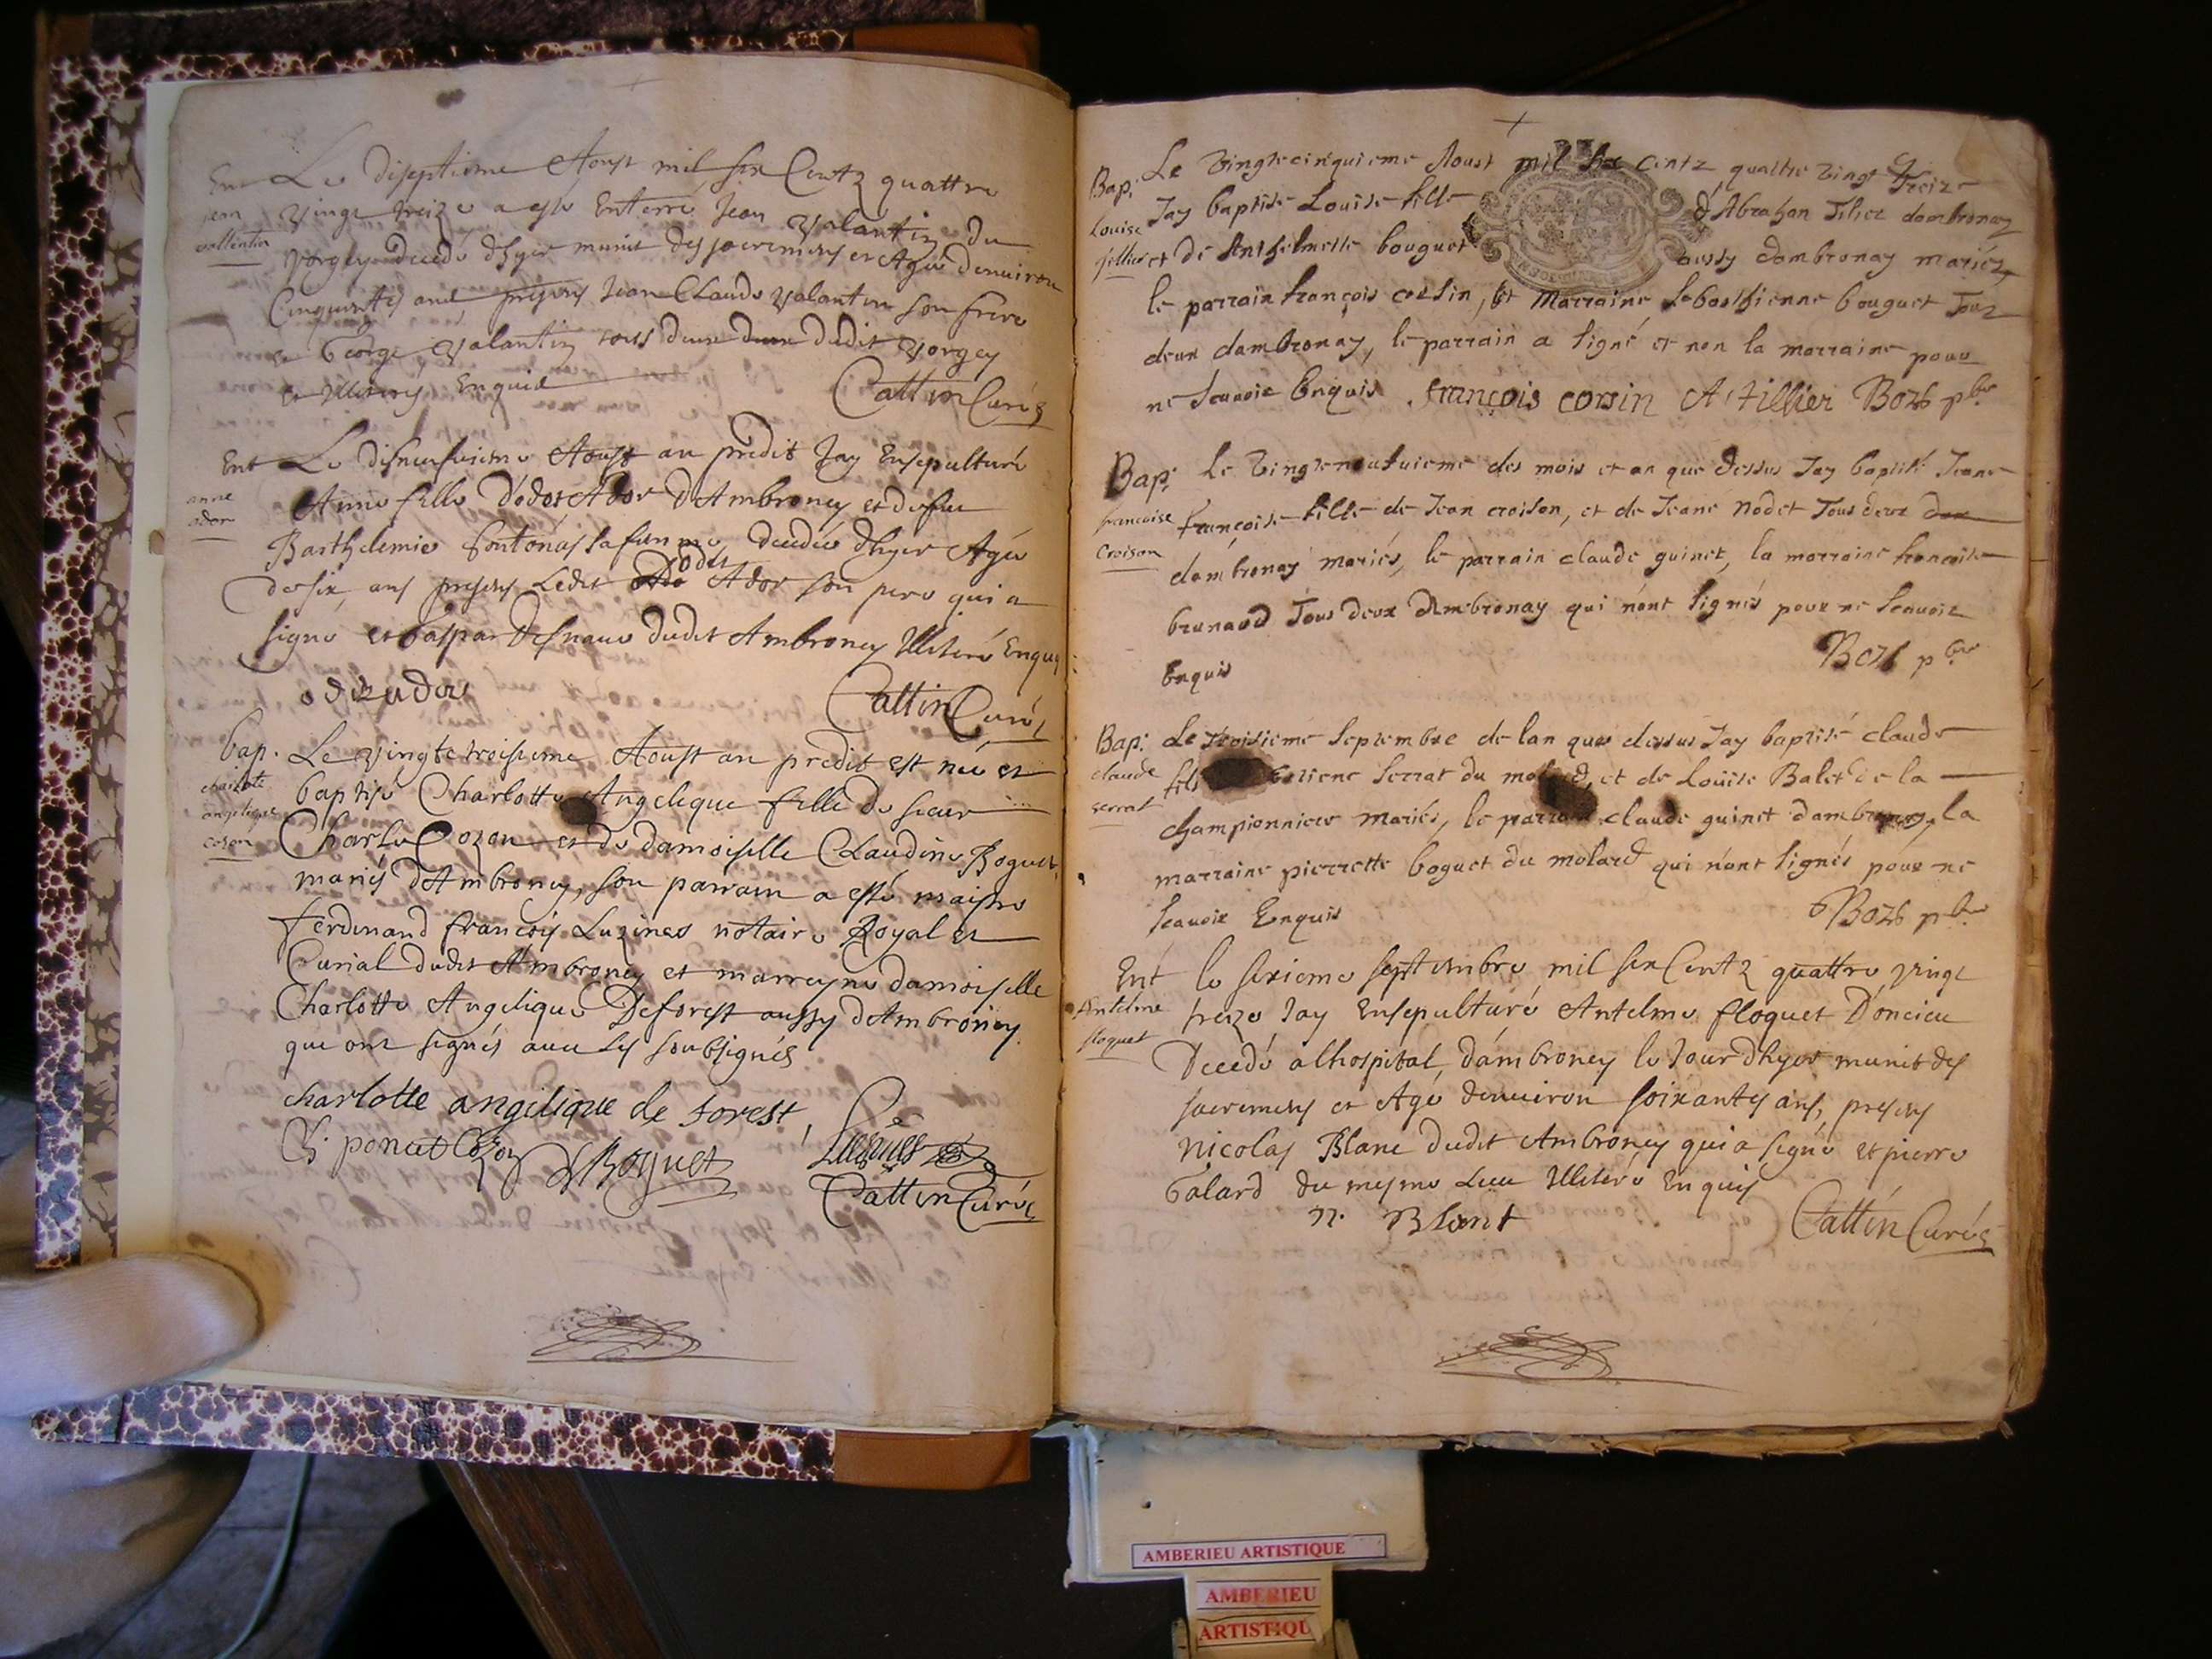 Ent Le diseptiesme Aoust mil six Centz quattre
jean
vallentin
vingt treize a esté Enterré Jean valantin du
vorgey decedé dhyer munit des sacremens et Agé denuiron
Cinquantes ans presens Jean Claude valantin son frere
et George valantin tous deux dudit vorgey
et Illiterés Enquis
Cattin Curés
Ent Le disneufuieme Aoust an predit Jay Ensepulturé
anne
ador
Anne fille d'odet Ador d'Ambroney et de feu
Barthelemie fontonas sa femme decedée dhyer Agée
de six ans presens Ledit odet Ador son pere qui a
signé et Gaspar dudit Ambroney Illiteré Enquis
Cattin Curés
bap. Le vingtetroisieme Aoust an predit est née et
charlote
angelique
cozon
baptisé Charlotte Angelique fille de sieur
Charle Cozon et de damoiselle Claudine Boguet
mariés d'Ambroney, son parrain a esté maistre
ferdinand françois Luzines notaire Royal et
Curial dudit Ambroney et marreyne damoiselle
Charlotte Angelique Deforest aussy d'Ambroney
qui ont signés auec les soubsignés
charlotte angelique de forest,
poncet Cozon Boguet
Cattin Curés
Bap. Le vingtecinquieme Aoust mil six centz quattre vingt treize
Louise
tillier
Jay baptisé Louise fille d'Abrahan Tilier dambronay
et de Anthelmette bouguet aussy dambronay mariéz,
le parrain françois corsin, et Marraine sebasthienne bouguet Tous
deux dambronay, le parrain a signé et non la marraine pour
ne scauoir Enquis. françois corsin A. tillier Bozs pbre
Bap. Le vingteneufuieme des mois et an que dessus Jay baptisé Jeane
francoise
croison
françoise fille de Jean croison, et de Jeane nodet Tous deux
dambronay mariés, le parrain claude guinet, la marraine francoise
brunaud Tous deux dAmbronay qui n'ont signés pour ne scauoir
Enquis
Bozs pbre
Bap. Le troisieme septembre de lan que dessus Jay baptisé claude
claude
serrat
fils serrat du molard, et de Louise Balet de la
championniere mariés, le parrain claude guinet dambronay, la
marraine pierrette boguet du molard qui n'ont signés pour ne
scauoir Enquis
Bozs pbre
Ent le sixieme septembre mil six Centz quattre vingt
Antelme
floquet
treize Jay Ensepulturé Antelme floquet D'oncieu
Decedé alhospital d'ambroney le Jour dhyer munit des
sacremens et Agé denuiron soixantes ans, presens
Nicolas Blanc dudit Ambroney qui a signé et pierre
Galard du mesme Lieu Illiteré Enquis
n. Blant Cattin Curés
AMBERIEU ARTISTIQUE
AMBERIEU
ARTISTIQU